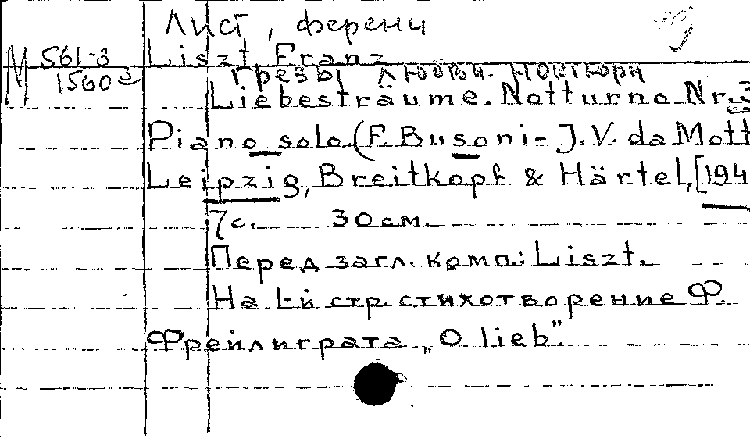 Лист, ференц
М 561-3
1560
Liszt, Franz
Грезы любви. Ноктюрн
Liebesträume. Notturno Nr. 3
Piano solo. (F. Busoni - J. V. da Mott
Leipzig, Breitkopf & Härtel, [194
7 с. 30 см.
Перед загл. комп.: Liszt.
На 1-й стр. стихотворение Ф.
Фрейлиграта „O lieb".